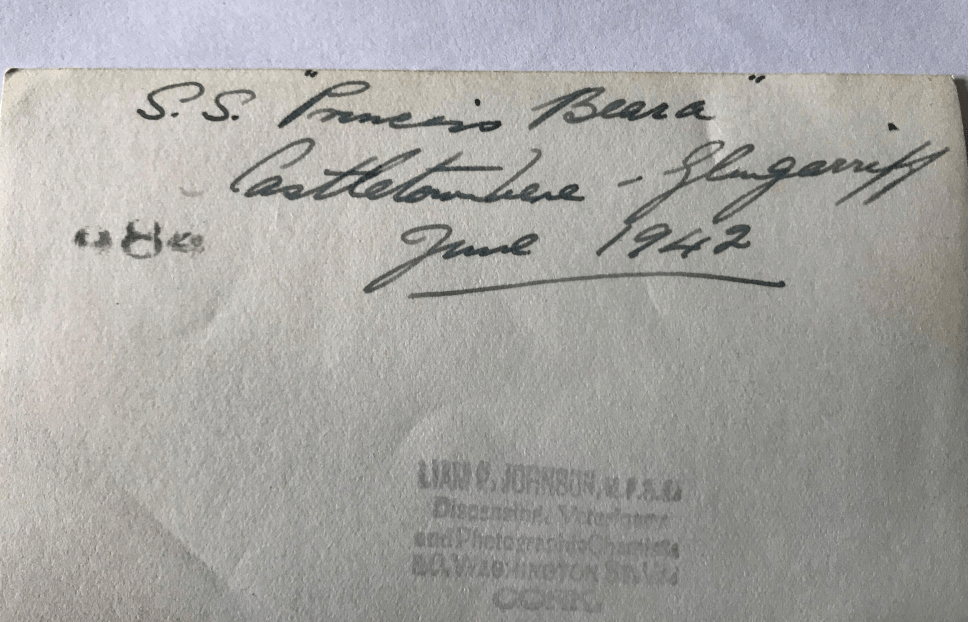 S.S. "Princess Beara"
Castletownbere - Glengarriff
June 1942
LIAM P. JOHNSON, M.P.S.I.
Dispensing, Veterinary
and Photographic Chemists
WASHINGTON
CORK